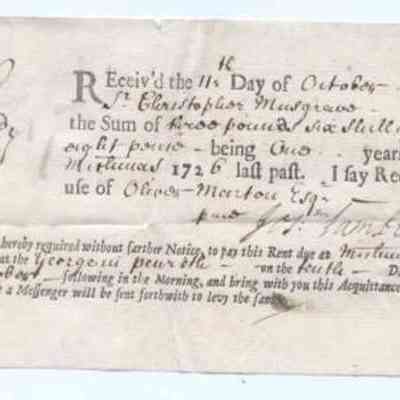 REceiv'd the 11th Day of October
Sr. Christopher Musgrave
the Sum of three pounds six shill
eight pence - being One - year
Michmas 1726 last past. I say Rec
use of Oliver Marton Esqr
hereby required without farther Notice, to pay this Rent due at
at the George in - on the tenth - D
following in the Morning, and bring with you this Acquittance
a Messenger will be sent forthwith to levy the same